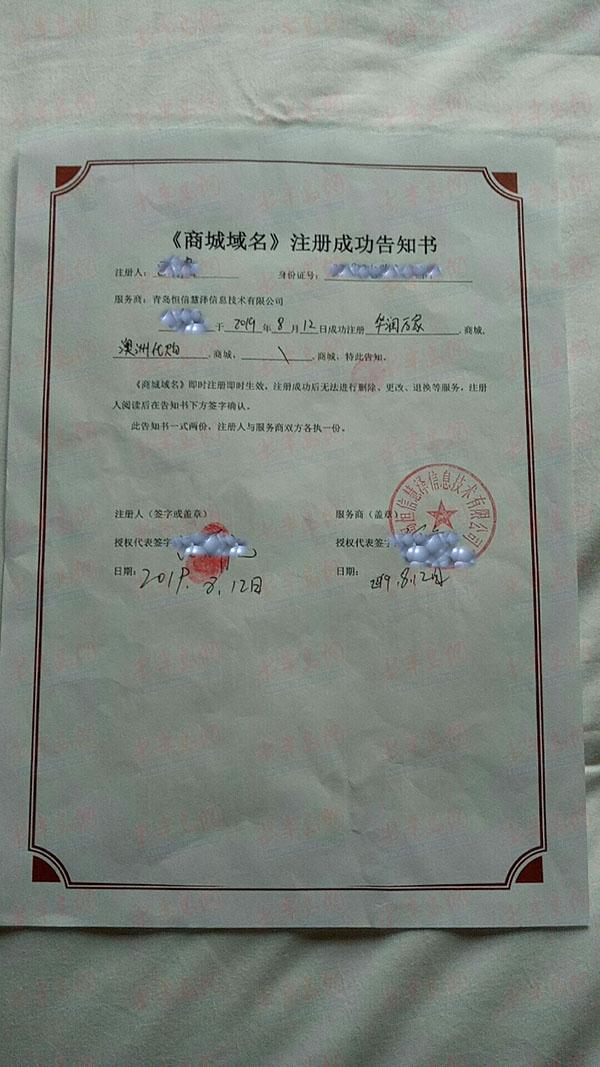 《商城域名》注册成功告知书
注册人： 身份证号：
服务商：青岛恒信慧泽信息技术有限公司
于 2019 年 8 月 12 日成功注册 华润万家 .商城,
澳洲代购 .商城, \ .商城, 特此告知。
《商城域名》即时注册即时生效，注册成功后无法进行删除、更改、退换等服务，注册
人阅读后在告知书下方签字确认。
此告知书一式两份，注册人与服务商双方各执一份。
注册人（签字或盖章） 服务商（盖章）
恒信慧泽信息技术有限公司
授权代表签字 授权代表签字
日期：2019.8.12日 日期：2019.8.12日